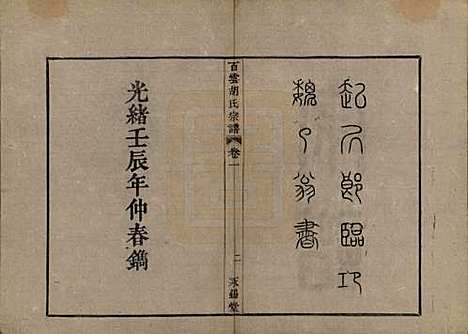 起居郎臨邛
魏了翁書
百雲胡氏宗譜 卷一 二 永錫堂
光緒壬辰年仲春鐫